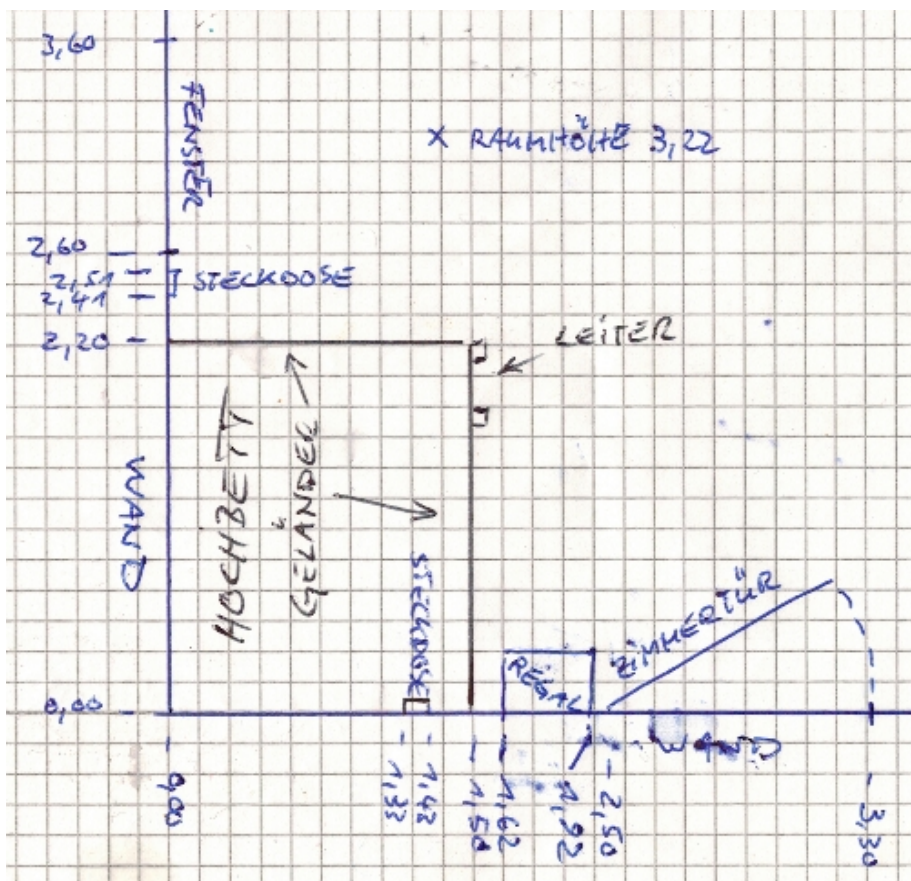 3,60
FENSTER
x RAUMHÖHE 3,22
2,60
2,51
STECKDOSE
2,41
2,20
LEITER
WAND
HOCHBETT
GELÄNDER
STECKDOSE
REGAL
ZIMMERTÜR
0,00
WAND
0,00
1,33
1,43
1,50
1,62
1,92
2,50
3,30